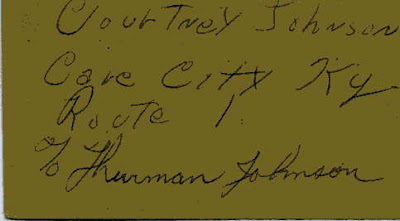 Courtney Johnson
Cave City Ky
Route 1.
c/o Thurman Johnson